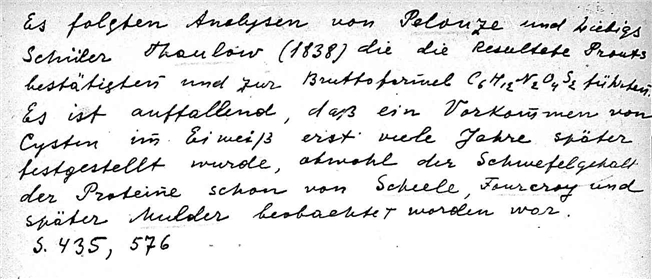 Es folgten Analysen von Pelouze und Liebigs
Schüler Thaulow (1838) die die Resultate Prouts
bestätigten und zur Bruttoformel C₆H₁₂N₂O₄S₂ führten.
Es ist auffallend, daß ein Vorkommen von
Cysten im Eiweiß erst viele Jahre später
festgestellt wurde, obwohl der Schwefelgehalt
der Proteine schon von Scheele, Fourcroy und
später Mulder beobachtet worden war.
S. 435, 576